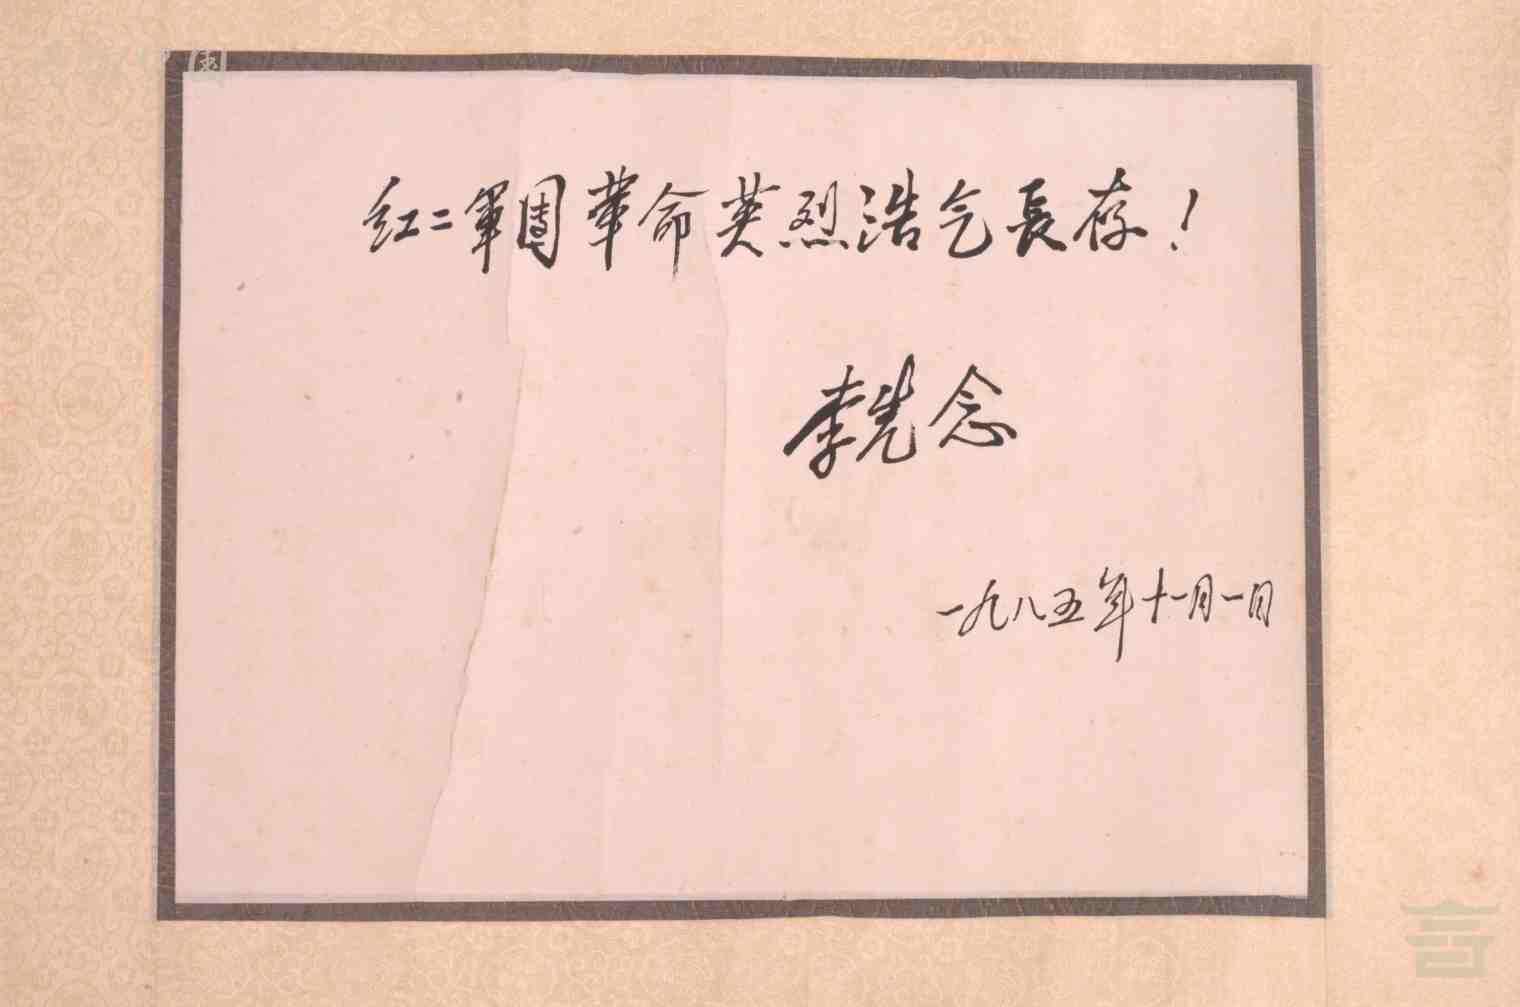 红二軍團革命英烈浩气長存！
李先念
一九八五年十一月一日